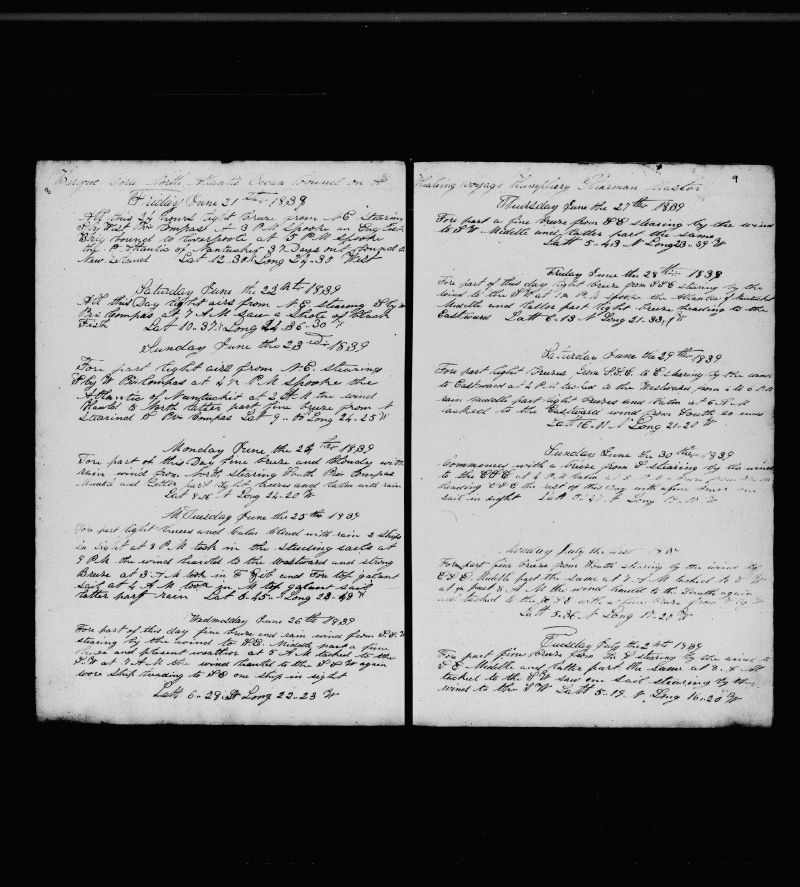 8
Barque North Atlantic Ocean bound on A
Friday June 21 1839
All this 24 hours light breeze from N E Stearing
by West Per Compas A 3 P M Spooke an English
Brig bound to Liverpoole at 5 P M Spooke
the Atlantic of Nantucket 32 Days out bound to
New Zeland Lat 12.30 N Long 24.30 West
Saturday June the 22 1839
All this Day light airs from N. E. stearing S by W
Per Compas at 7 A M Saw a Shole of Black
Fish Lat 10.37 N Long 24.36.30 W
Sunday June the 23 1839
Fore part light airs from N. E. stearing
S by W Per Compas at 4 P. M Spooke the
Atlantic of Nantucket at 2 A M the wind
Hawld to North latter part fine breeze from N
Stearind S Per Compas Lat 9 Long 24.25 W
Monday June the 24 1839
Fore part of this Day fine breze and Cloudy with
Rain wind from North stearing South Per Compas
Middle and Latter part light breezes and Calm with rain
Lat 8 N Long 24.20 W
Tuesday June the 25th 1839
Fore part light breezes and Calm Cloud with rain 2 Ships
in Sight at 8 P M took in the studing sails at
9 P.M. the wind hauld to the Westward and strong
Breeze at 3 A M took in F Jib and Fore top galant
sail at 4 A.M took in M top galant sail
latter part rain Lat 6.45 N Long 23.48 W
Wednesday June 26th 1839
Fore part of this day fine breze and rain wind from
stearing by the wind to S.E. Middle part a fine
breze and plesent weather at 5 A M tacked to the
S. W at 7 A M the wind hauld to the again
wore Ship heading to S E one ship in sight
Latt 6.29 N Long 22.23 W
9
Whaling Voyage Humphery Master
Thursday June the 27th 1839
Fore part a fine breeze from S E stearing by the wind
to S W Middle and latter part the same
Latt 5.43 N Long 23.39 W
Friday June the 28th 1839
Fore part of this day light breeze from S S E stearing by the
wind to the S W at 1 P.M spooke the Atlantic of Nantucket
Middle and latter part light breeze heading to the
Eastward Latt 6.13 N Long 21.33 W
Saturday June the 29th 1839
Fore part light Breezes from S.S.E. to E stearing by the wind
to Eastward at 4 P. M tacked to the Westward from 4 to 6 P M
rain middle part light breezes and Calm at 6 A M
tacked to the Eastward wind from South
Latt 6.11 N Long 21.20 W
Sunday June the 30th 1839
Commences with a breeze from S stearing by the wind
to the E S E at 4 P M Calm at 5 P M a breeze from
heading E S E the rest of this Day with a fine breeze one
sail in sight Latt 5 N Long
Monday July the first
Fore part fine breeze from South stearing by the wind
E S E. Middle part the same at 7 A. M tacked to S W
at past 8 A M the wind hauld to the South again
and tacked to the E S E with a fine breeze from
Latt 5.36 N Long 17.20 W
Tuesday July the 2th 1839
Fore part fine breeze from S stearing by the wind to
S E Middle and latter part the same at 8 A M
tacked to the S W saw one sail stearing by the
wind to the S W Latt 5.19 N Long 16.20 W